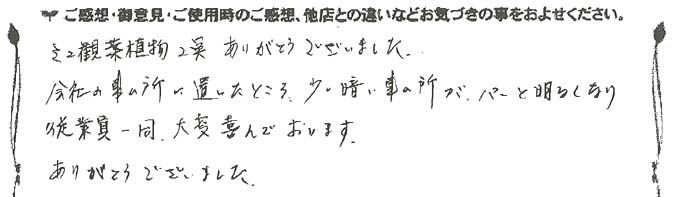 ご感想・御意見・ご使用時のご感想、他店との違いなどお気づきの事をおよせください。
観葉植物 ありがとうございました。
会社の事ム所に置いたところ、少し暗い事ム所が、パーと明るくなり
従業員一同、大変喜んでおります。
ありがとうございました。